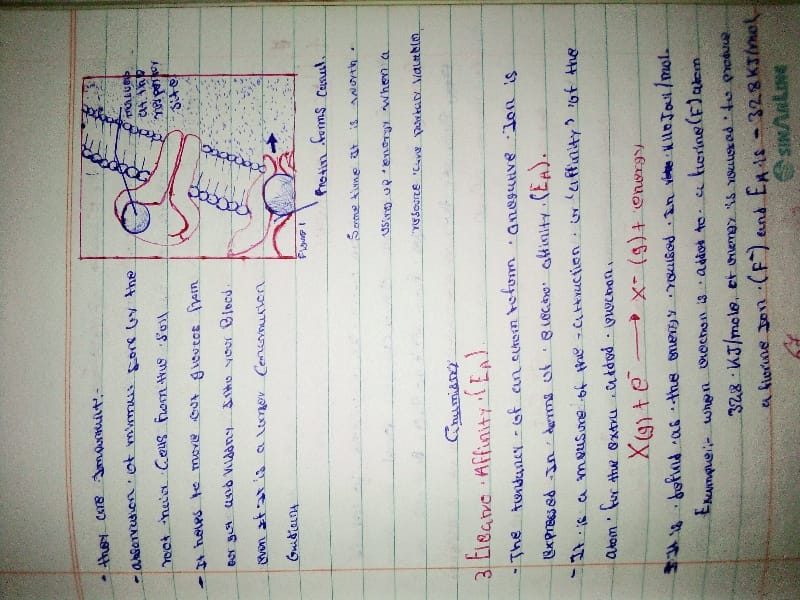 - they are Important:-
- absorution of mirmais Ions by the
root hair Cells from the Soil
- It helps to move out glucose from
our gut and kidney Into your Blood
even if It is a Lower Concentration
Gradient
molecule
at the
site
Figure 1
Protin forms Canal.
Some time it is worth
using up energy when a
resource
Chemistry
3 Electro Affinity (EA)
- The tendancy of an atom to form anegative Ion is
expressed In terms of electro affinity (EA).
- It is a measure of the attraction or 'affinity' of the
atom for the extra added electron.
X(g) + e⁻ → X⁻(g) + energy
It is defind as the energy released In KiloJoul/mol.
Example:- when electron is added to a florine (F) atom
328 KJ/mole of energy is released to produce
a florine Ion (F⁻) and EA is - 328 KJ/mol
SINARLINE
67